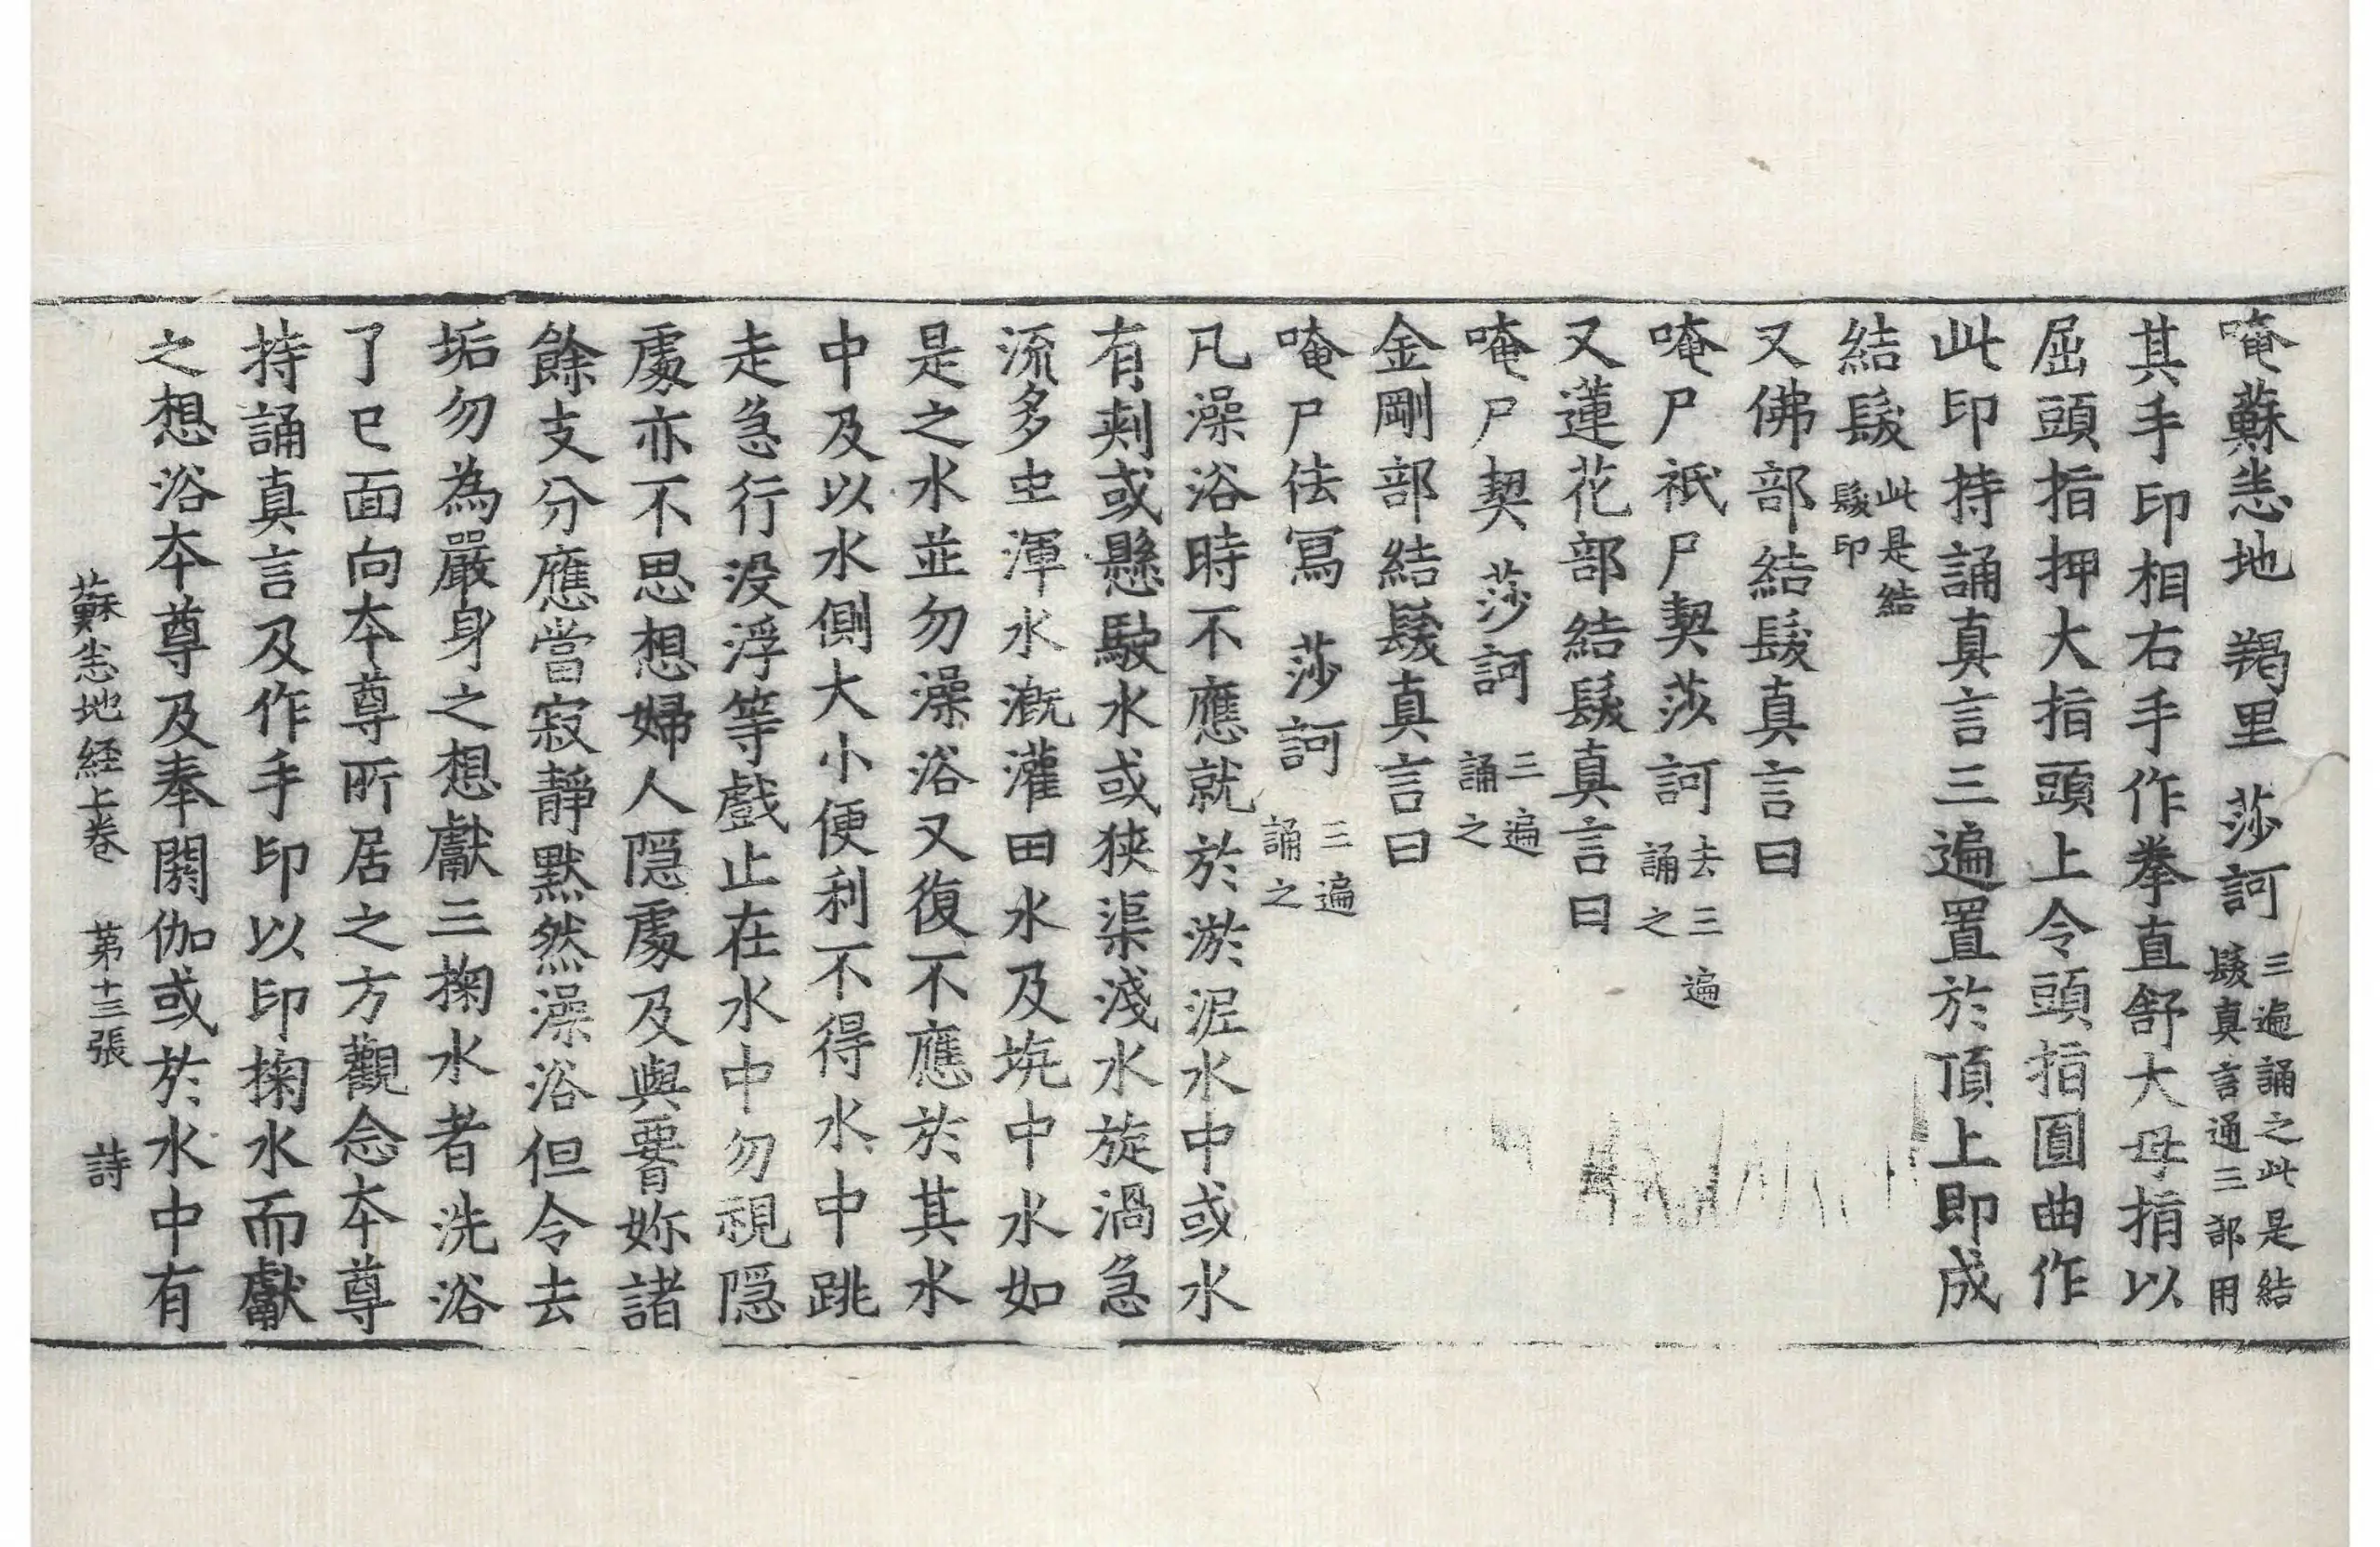 唵蘇悉地 羯里 莎訶三遍誦之此是結髮真言通三部用
其手印相右手作拳直舒大母指以
屈頭指押大指頭上令頭指圓曲作
此印持誦真言三遍置於頂上即成
結髮此是結髮印
又佛部結髮真言曰
唵尸祇尸契莎訶去三遍誦之
又蓮花部結髮真言曰
唵尸契 莎訶 三遍誦之
金剛部結髮真言曰
唵尸佉寫 莎訶 三遍誦之
凡澡浴時不應就於淤泥水中或水
有刺或懸駛水或狹渠淺水旋渦急
流多虫渾水溉灌田水及坑中水如
是之水並勿澡浴又復不應於其水
中及以水側大小便利不得水中跳
走急行沒浮等戲止在水中勿視隠
處亦不思想婦人隠處及與㖶妳諸
餘支分應當寂靜默然澡浴但令去
垢勿為嚴身之想獻三掬水者洗浴
了已面向本尊所居之方觀念本尊
持誦真言及作手印以印掬水而獻
之想浴本尊及奉閼伽或於水中有
蘇悉地経上卷 第十三張 詩